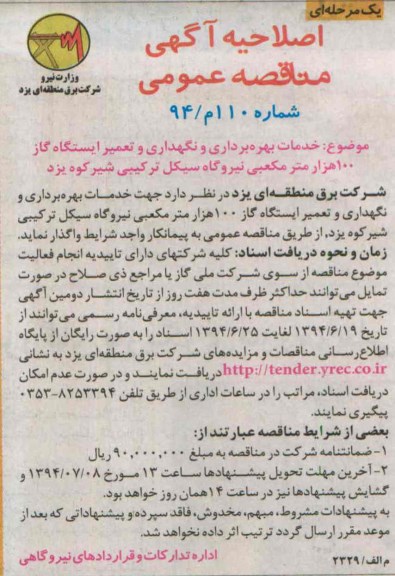 یک مرحله‌ای
اصلاحیه آگهی
مناقصه عمومی
شماره ۱۱۰م/۹۴
وزارت نیرو
شرکت برق منطقه‌ای یزد
موضوع: خدمات بهره‌برداری و نگهداری و تعمیر ایستگاه گاز
۱۰۰هزار متر مکعبی نیروگاه سیکل ترکیبی شیرکوه یزد
شرکت برق منطقه‌ای یزد در نظر دارد جهت خدمات بهره‌برداری و
نگهداری و تعمیر ایستگاه گاز ۱۰۰هزار متر مکعبی نیروگاه سیکل ترکیبی
شیرکوه یزد، از طریق مناقصه عمومی به پیمانکار واجد شرایط واگذار نماید.
زمان و نحوه دریافت اسناد: کلیه شرکتهای دارای تاییدیه انجام فعالیت
موضوع مناقصه از سوی شرکت ملی گاز یا مراجع ذی صلاح در صورت
تمایل می‌توانند حداکثر ظرف مدت هفت روز از تاریخ انتشار دومین آگهی
جهت تهیه اسناد مناقصه با ارائه تاییدیه، معرفی‌نامه رسمی می‌توانند از
تاریخ ۱۳۹۴/۶/۱۹ لغایت ۱۳۹۴/۶/۲۵ اسناد را به صورت رایگان از پایگاه
اطلاع‌رسانی مناقصات و مزایده‌های شرکت برق منطقه‌ای یزد به نشانی
http://tender.yrec.co.ir دریافت نمایند و در صورت عدم امکان
دریافت اسناد، مراتب را در ساعات اداری از طریق تلفن ۸۲۵۳۳۹۴-۰۳۵۳
پیگیری نمایند.
بعضی از شرایط مناقصه عبارتند از:
۱- ضمانتنامه شرکت در مناقصه به مبلغ ۹۰,۰۰۰,۰۰۰ ریال
۲- آخرین مهلت تحویل پیشنهادها ساعت ۱۳ مورخ ۱۳۹۴/۰۷/۰۸ و
گشایش پیشنهادها نیز در ساعت ۱۴ همان روز خواهد بود.
به پیشنهادات مشروط، مبهم، مخدوش، فاقد سپرده و پیشنهاداتی که بعد از
موعد مقرر ارسال گردد ترتیب اثر داده نخواهد شد.
اداره تدارکات و قراردادهای نیروگاهی
م الف/۲۳۲۹